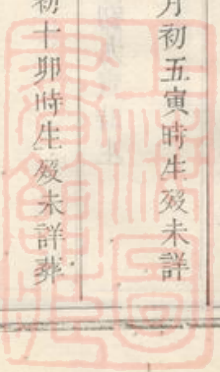 月初五寅時生歿未詳
初十卯時生歿未詳葬